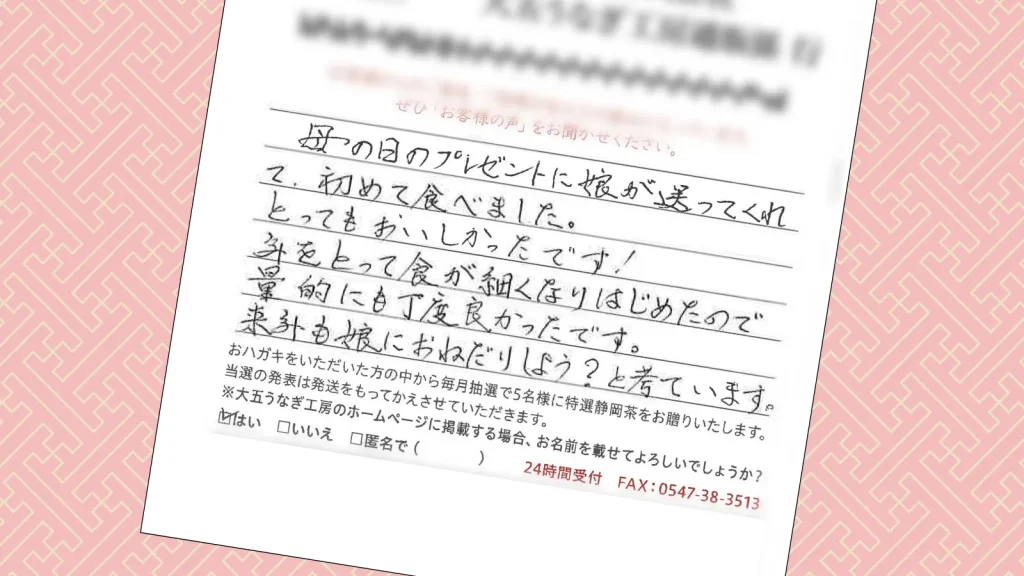 大五うなぎ工房通販係 行
ぜひ「お客様の声」をお聞かせください。
母の日のプレゼントに娘が送ってくれ
て、初めて食べました。
とってもおいしかったです!
年をとって食が細くなりはじめたので
量的にも丁度良かったです。
来年も娘におねだりしよう?と考ています。
おハガキをいただいた方の中から毎月抽選で5名様に特選静岡茶をお贈りいたします。
当選の発表は発送をもってかえさせていただきます。
※大五うなぎ工房のホームページに掲載する場合、お名前を載せてよろしいでしょうか?
☑はい □いいえ □匿名で( )
24時間受付 FAX:0547-38-3513